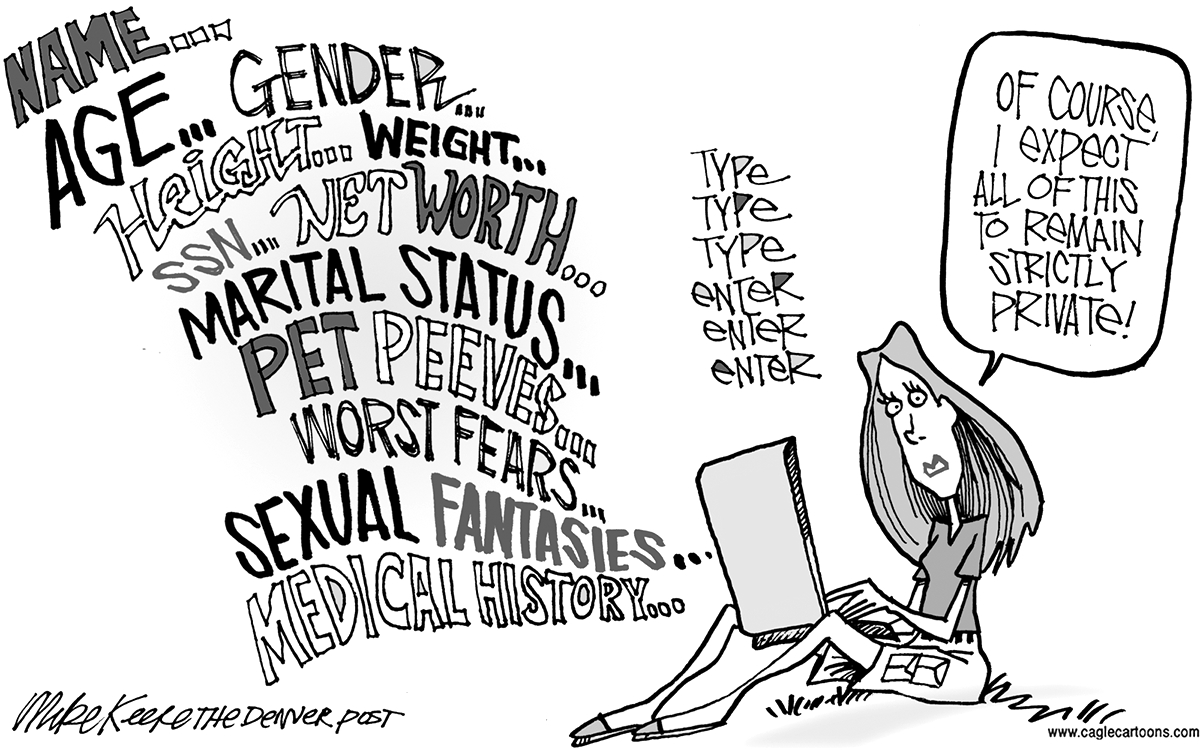 NAME....
AGE... GENDER....
HeiGHT... WEIGHT...
SSN.... NET WORTH...
MARITAL STATUS...
PET PEEVES...
WORST FEARS...
SEXUAL FANTASIES...
MEDICAL HISTORY...
TYPe
TYPe
TYPe
eNTeR
eNTeR
eNTeR
OF COURSE,
I expecT
ALL OF THIS
TO ReMAIN
STRICTLY
PRIVATE!
Mike Keefe THe DeNVeR POST
www.caglecartoons.com